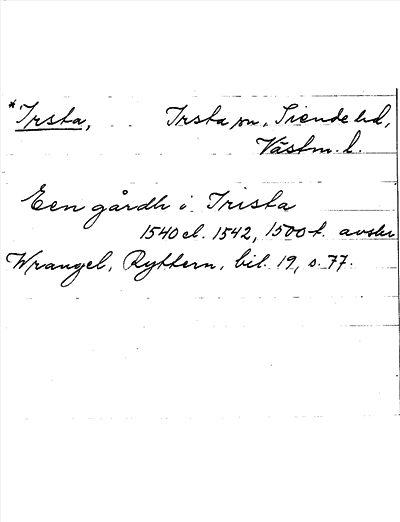 *Irsta, Irsta sn, Siende hd,
Västm. l.
Een gårdh i Irista
1540 el. 1542, 1500t. avskr
Wrangel, Ryttern, bil. 19, s. 77.